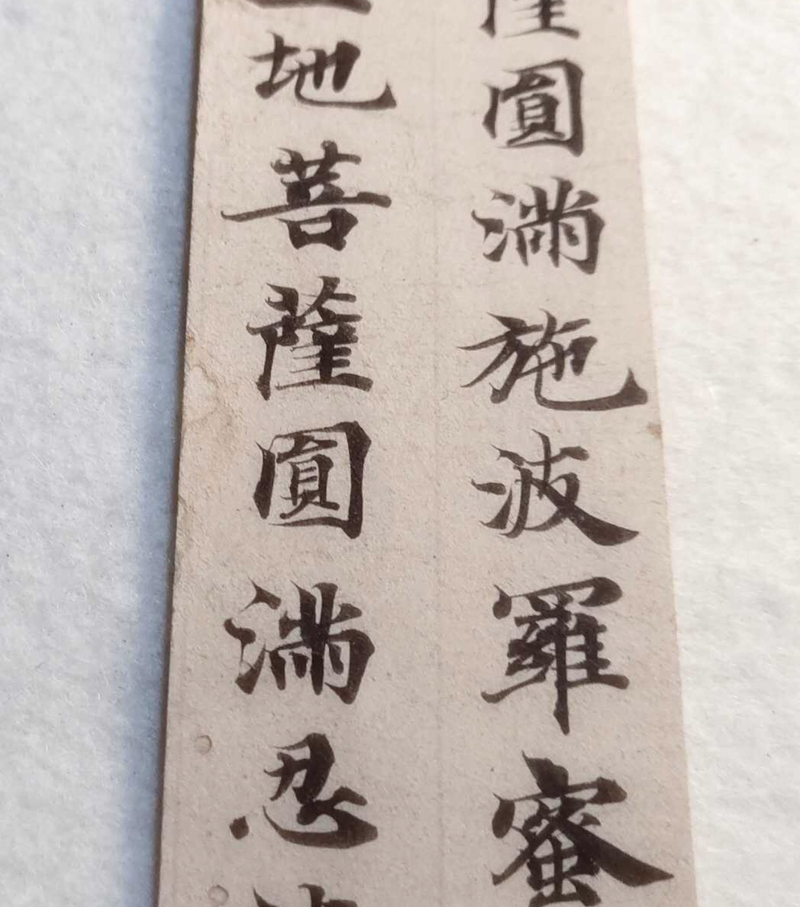 薩圓滿施波羅蜜
地菩薩圓滿忍